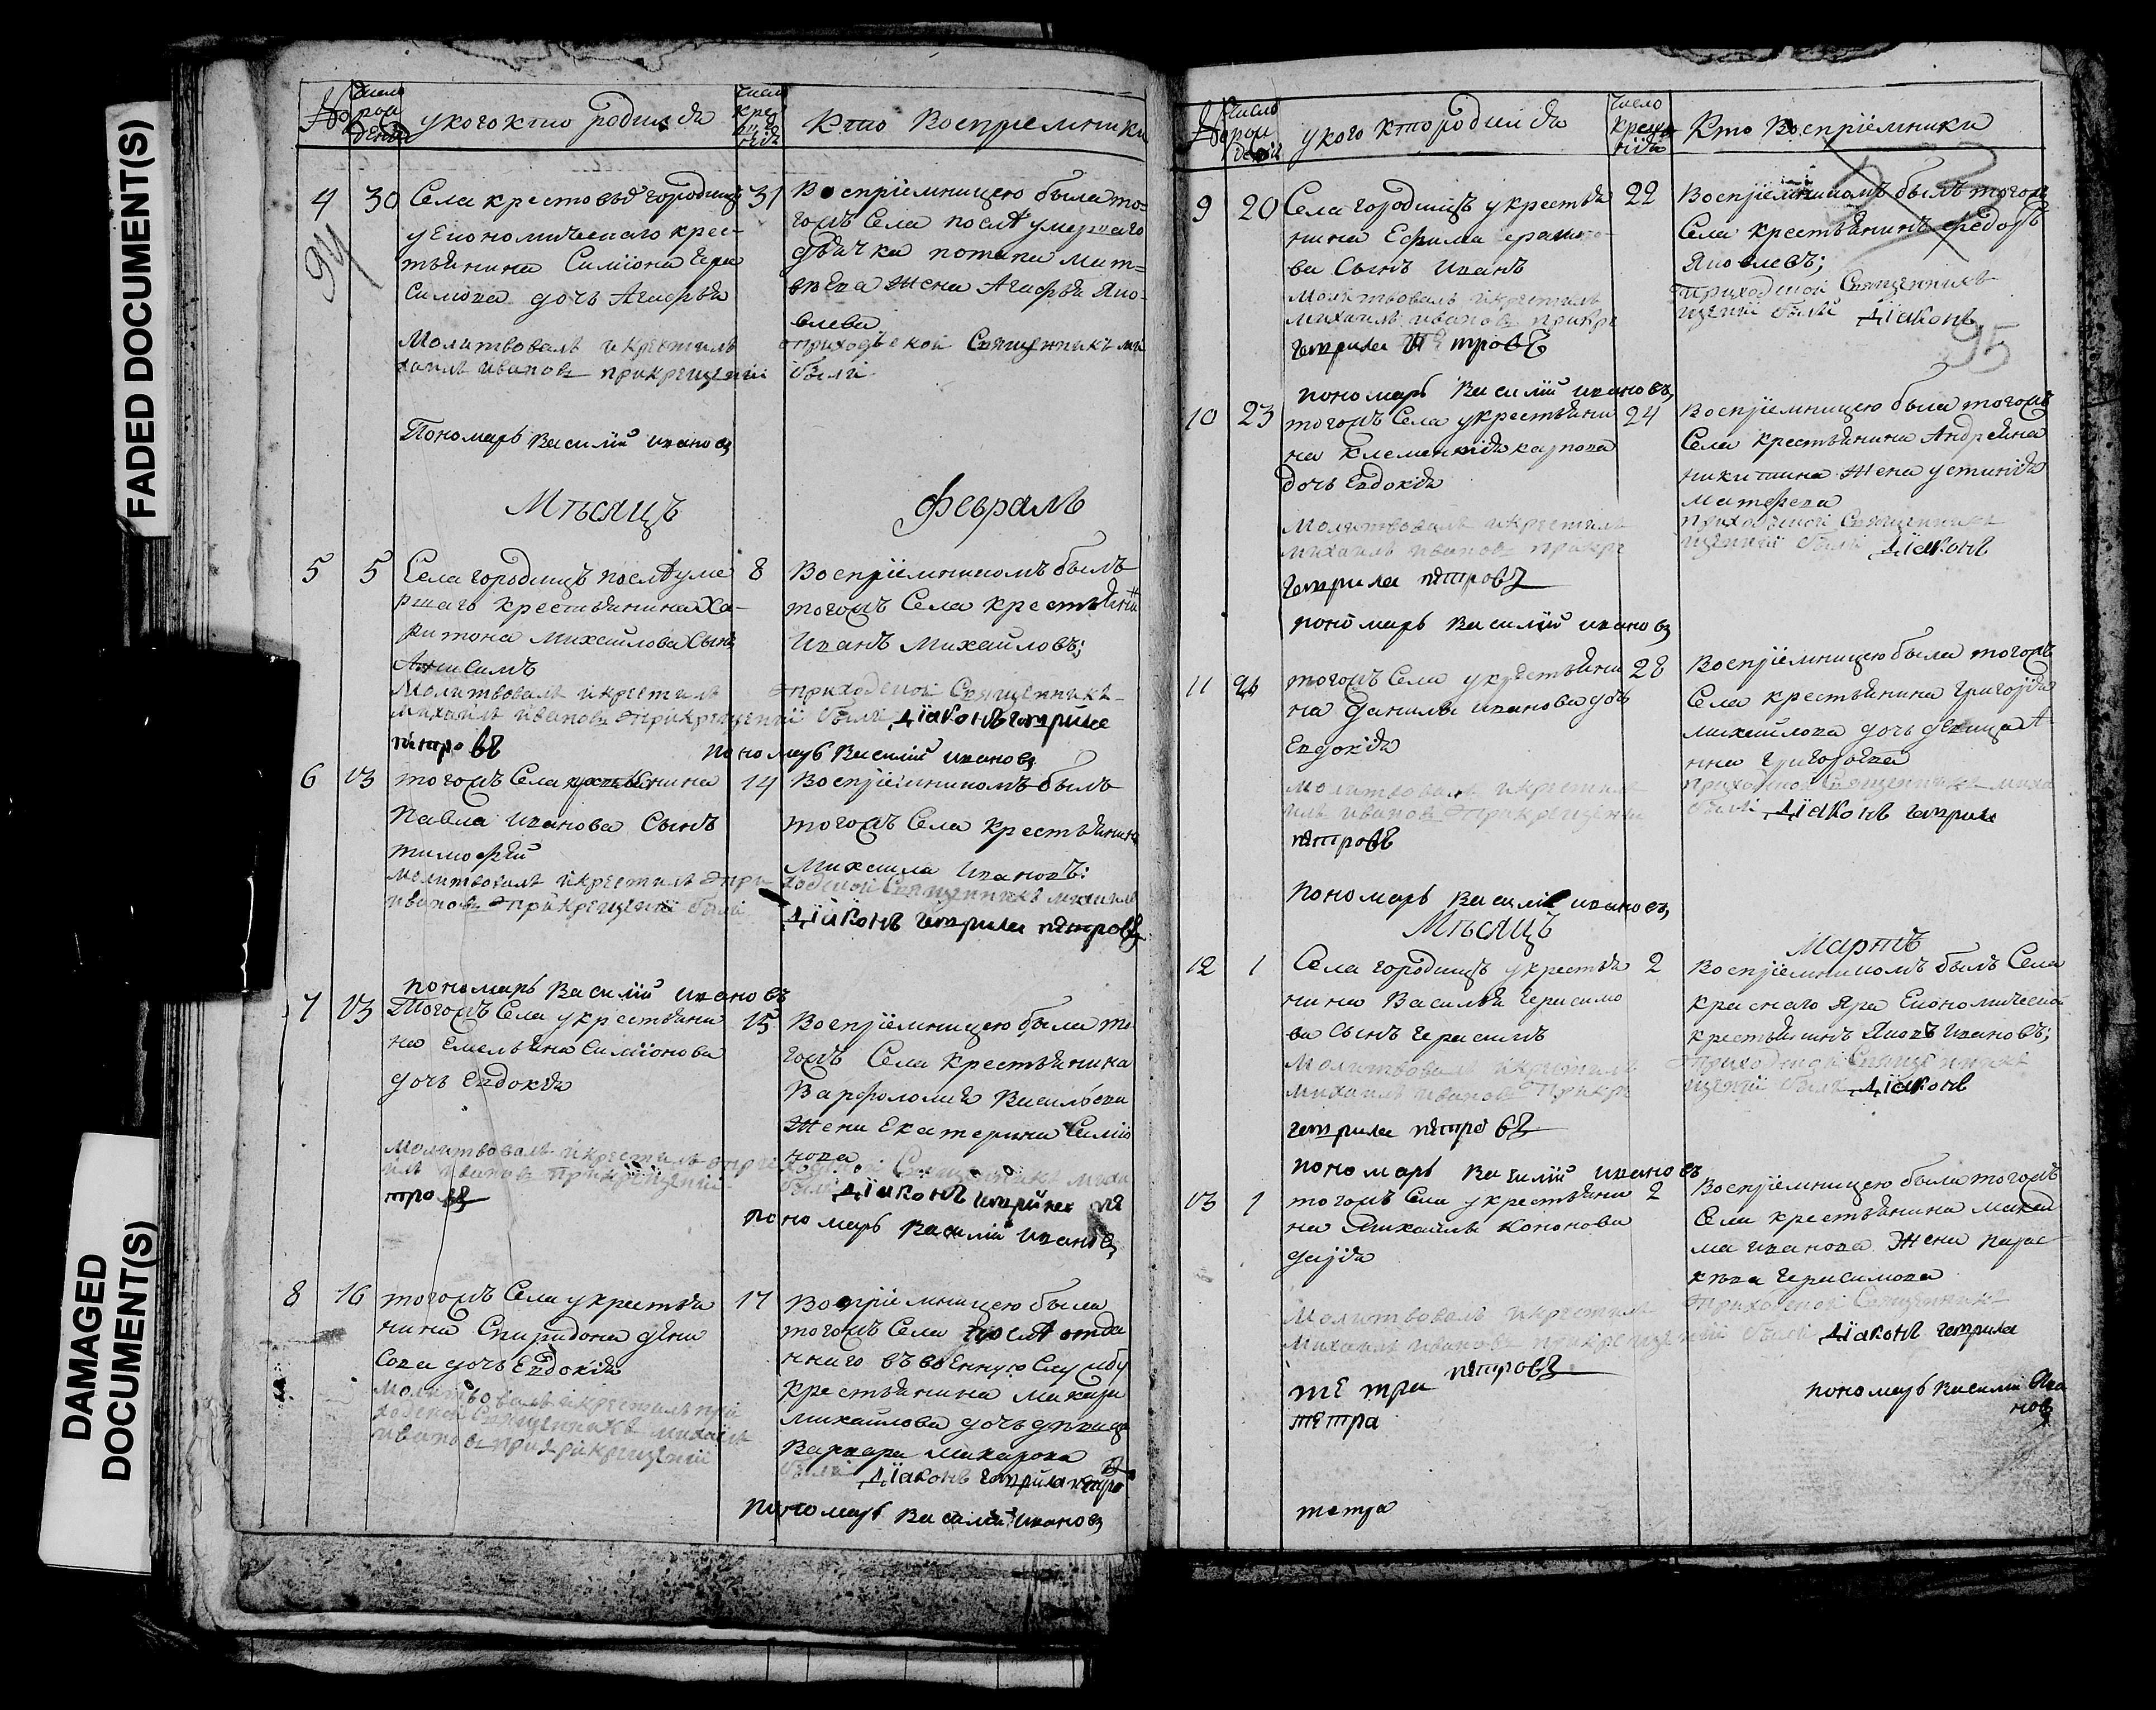 FADED DOCUMENT(S)
DAMAGED DOCUMENT(S)
№
Число рождения
у кого кто родился
Число крещения
Кто Восприемники
94
4 30 31
Села крестовъ городищъ
у Економическаго крес-
тьянина Симиона Гера
симова дочь Агафья
Молитвовалъ и крестилъ
хаилъ Ивановъ при крещении
Пономарь Василий Ивановъ
Восприемницею была то=
гожъ Села послѣ умершаго
дьячка потапа Мат=
вѣева Жена Агафья Яко-
влева
приходской Священникъ ми
были
Мѣсяцъ Февраль
5 5 8
Села городищъ послѣ уме
ршагь крестьянина Ха-
ритона Михайлова Сынъ
Анисимъ
Молитвовалъ и крестилъ
Михаилъ Ивановъ при крещении были Діаконъ Гаврила
петровъ
Восприемникомъ былъ
тогожъ Села крестьянинъ
Иванъ Михайловъ;
приходской Священникъ
пономарь Василий Ивановъ
6 13 14
тогожъ Села крестьянина
Павла Иванова Сынъ
тимофей
молитвовалъ и крестилъ при
Ивановъ при крещении были
пономарь Василий Ивановъ
Восприемникомъ былъ
тогожъ Села крестьянина
Михаила Ивановъ:
ходской Священникъ михаилъ
Діаконъ Гаврила петровъ
7 13 15
Тогожъ Села у крестьяни
на Емельяна Симионова
дочь Евдокия
Молитвовалъ и крестилъ при
илъ Ивановъ при крещении
тровъ
Восприемницею была то
гожъ Села крестьянина
Варфоломия Васильева
Жена Екатерина Симио
нова
ходской Священникъ миха
были Діаконъ Гаврила пе
пономарь Василий Ивановъ
8 16 17
тогожъ Села у крестья
нина Спиридона Дени
сова дочь Евдокия
Молитвовалъ и крестилъ при
ходской Священникъ михаилъ
Ивановъ при крещении
Восприемницею была
тогожъ Села послѣ отда
ннаго въ военную Службу
крестьянина Макара
Михайлова дочь дѣвица
Варвара Макарова
были Діаконъ Гаврила петро
пономарь Василий Ивановъ
№
Число рождения
у кого кто родился
Число крещения
Кто Восприемники
95
9 20 22
Села городищъ у крестья
нина Ефима Гераси
ва Сынъ Иванъ
Молитвовалъ и крестилъ
Михаилъ Ивановъ при кре
Гаврила Петровъ
пономарь Василий Ивановъ
Восприемникомъ былъ тогожъ
Села крестьянинъ Федоръ
Яковлевъ;
приходской Священникъ
щении были Діаконъ
10 23 24
тогожъ Села у крестьяни
на Клементия карпова
дочь Евдокия
Молитвовалъ и крестилъ
Михаилъ Ивановъ при кре
Гаврила петровъ
пономарь Василий Ивановъ
Восприемницею была тогожъ
Села крестьянина Андреяна
никитина Жена устиния
Матфеева
приходской Священникъ
щении были Діаконъ
11 26 28
тогожъ Села у крестьяни
на Данилы Иванова дочь
Евдокия
молитвовалъ и крестилъ
илъ Ивановъ при крещении
петровъ
пономарь Василий Ивановъ
Восприемницею была тогожъ
Села крестьянина Григория
михайлова дочь девица А
нна Григорьева
приходской Священникъ миха
были Діаконъ Гаврила
Мѣсяцъ Мартъ
12 1 2
Села городищъ у крестья
нина Василья Герасимо
ва Сынъ Герасимъ
Молитвовалъ и крестилъ
Михаилъ Ивановъ При кре
Гаврила петровъ
пономарь Василий Ивановъ
Восприемникомъ былъ Села
краснаго Яра Економической
крестьянинъ Яковъ Ивановъ;
приходской Священникъ
щении были Діаконъ
13 1 2
тогожъ Села у крестьяни
на Михаилы Кононова
дарья
Молитвовалъ и крестилъ
Михаилъ Ивановъ при крещении были Діаконъ Гаврила
петровъ
Восприемницею была тогожъ
Села крестьянина Макси
ма Иванова Жена парас
кѣва Герасимова
приходской Священникъ
пономарь Василий Ива
новъ
тетра
тетра
тетра